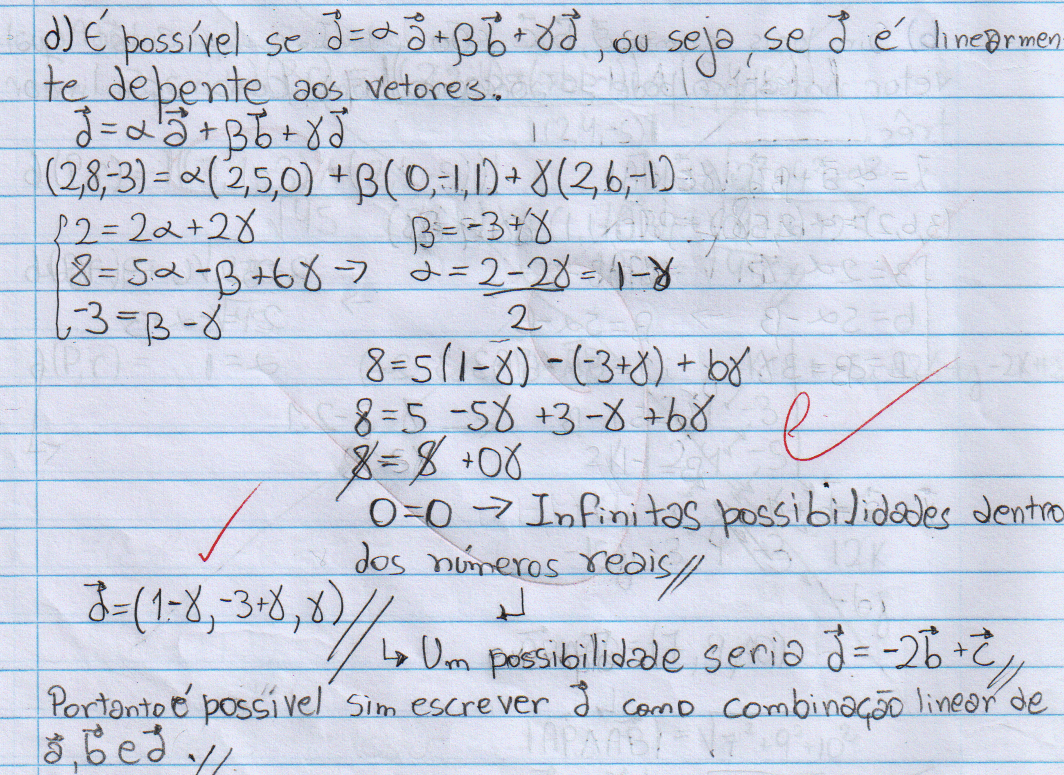 d) É possível se d⃗=αa⃗+βb⃗+γd⃗, ou seja, se d⃗ é linearmen
te depente aos vetores.
d⃗=αa⃗+βb⃗+γd⃗
(2,8,-3)=α(2,5,0)+β(0,-1,1)+γ(2,6,-1)
{2=2α+2γ β=-3+γ
8=5α-β+6γ → α=2-2γ=1-γ
-3=β-γ 2
8=5(1-γ)-(-3+γ)+6γ
8=5-5γ+3-γ+6γ
8=8+0γ
0=0 → Infinitas possibilidades dentro
dos números reais//
d⃗=(1-γ,-3+γ,γ)//
↳ Um possibilidade seria d⃗=-2b⃗+c⃗//
Portanto é possível sim escrever d⃗ como combinação linear de
a⃗, b⃗ e d⃗.//